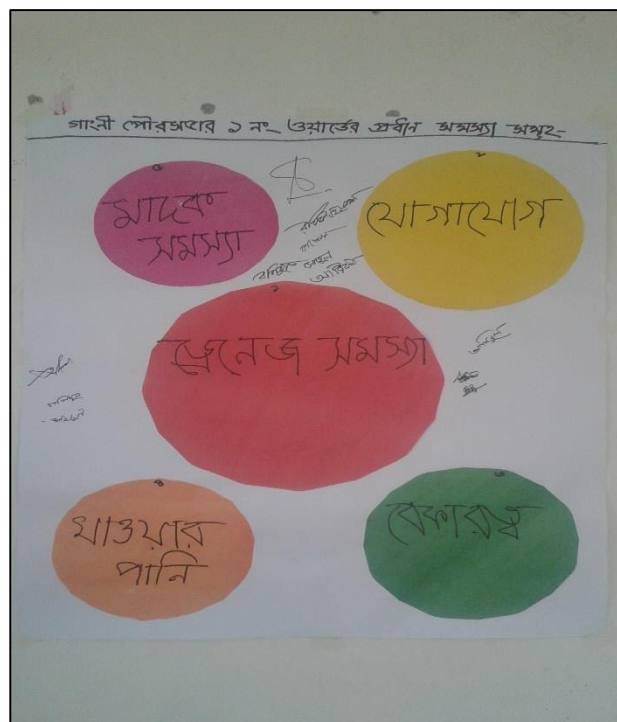 গাংনী পৌরসভার ১ নং ওয়ার্ডের প্রধান সমস্যা সমূহ-
মাদক
সমস্যা
২
যোগাযোগ
১
ড্রেনেজ সমস্যা
৪
খাওয়ার
পানি
৩
বেকারত্ব